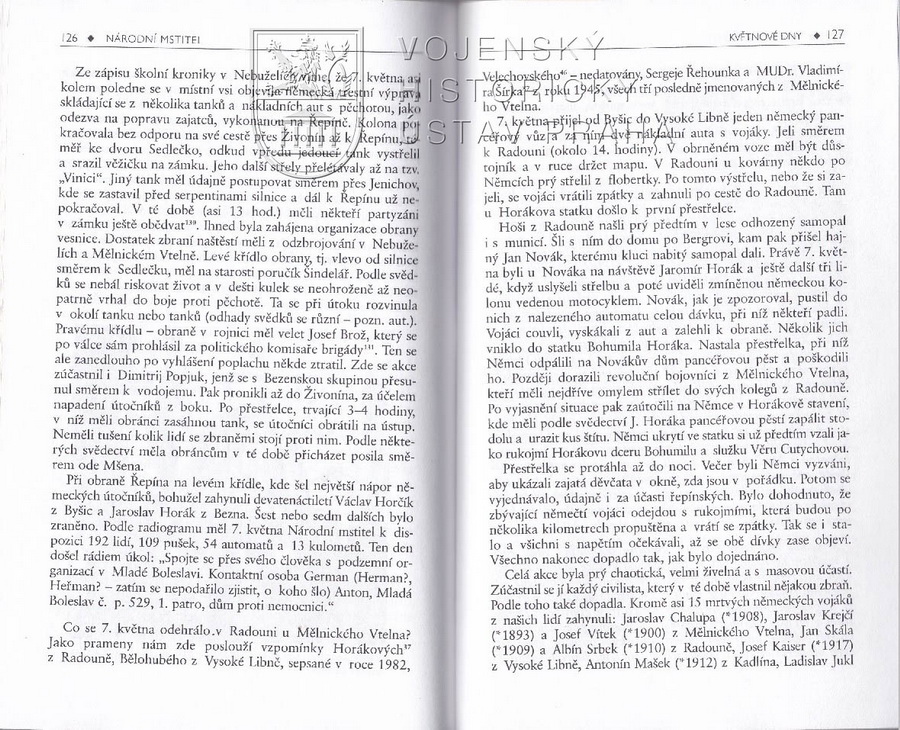 126 ◆ NÁRODNÍ MSTITEL
Ze zápisu školní kroniky v Nebuželích víme, že 7. května asi
kolem poledne se v místní vsi objevila německá trestní výprava
skládající se z několika tanků a nákladních aut s pěchotou, jako
odezva na popravu zajatců, vykonanou na Řepíně. Kolona po-
kračovala bez odporu na své cestě přes Živonín až k Řepínu, té-
měř ke dvoru Sedlečko, odkud vpředu jedoucí tank vystřelil
a srazil věžičku na zámku. Jeho další střely přelétávaly až na tzv.
„Vinici“. Jiný tank měl údajně postupovat směrem přes Jenichov,
kde se zastavil před serpentinami silnice a dál k Řepínu už ne-
pokračoval. V té době (asi 13 hod.) měli někteří partyzáni
v zámku ještě obědvat¹³⁰. Ihned byla zahájena organizace obrany
vesnice. Dostatek zbraní naštěstí měli z odzbrojování v Nebuže-
lích a Mělnickém Vtelně. Levé křídlo obrany, tj. vlevo od silnice
směrem k Sedlečku, měl na starosti poručík Šindelář. Podle svěd-
ků se nebál riskovat život a v dešti kulek se neohroženě až neo-
patrně vrhal do boje proti pěchotě. Ta se při útoku rozvinula
v okolí tanku nebo tanků (odhady svědků se různí – pozn. aut.).
Pravému křídlu – obraně v rojnici měl velet Josef Brož, který se
po válce sám prohlásil za politického komisaře brigády¹³¹. Ten se
ale zanedlouho po vyhlášení poplachu někde ztratil. Zde se akce
zúčastnil i Dimitrij Popjuk, jenž se s Bezenskou skupinou přesu-
nul směrem k vodojemu. Pak pronikli až do Živonína, za účelem
napadení útočníků z boku. Po přestřelce, trvající 3–4 hodiny,
v níž měli obránci zasáhnou tank, se útočníci obrátili na ústup.
Neměli tušení kolik lidí se zbraněmi stojí proti nim. Podle někte-
rých svědectví měla obráncům v té době přicházet posila smě-
rem ode Mšena.
Při obraně Řepína na levém křídle, kde šel největší nápor ně-
meckých útočníků, bohužel zahynuli devatenáctiletí Václav Horčík
z Byšic a Jaroslav Horák z Bezna. Šest nebo sedm dalších bylo
zraněno. Podle radiogramu měl 7. května Národní mstitel k dis-
pozici 192 lidí, 109 pušek, 54 automatů a 13 kulometů. Ten den
došel rádiem úkol: „Spojte se přes svého člověka s podzemní or-
ganizací v Mladé Boleslavi. Kontaktní osoba German (Herman?,
Heřman? – zatím se nepodařilo zjistit, o koho šlo) Anton, Mladá
Boleslav č. p. 529, 1. patro, dům proti nemocnici.“
Co se 7. května odehrálo v Radouni u Mělnického Vtelna?
Jako prameny nám zde poslouží vzpomínky Horákových
z Radouně, Bělohubého z Vysoké Libně, sepsané v roce 1982,
KVĚTNOVÉ DNY ◆ 127
Velechovského – nedatovány, Sergeje Řehounka a MUDr. Vladimí-
ra Šírka z roku 1945, všech tří posledně jmenovaných z Mělnické-
ho Vtelna.
7. května přijel od Byšic do Vysoké Libně jeden německý pan-
céřový vůz a za ním dvě nákladní auta s vojáky. Jeli směrem
k Radouni (okolo 14. hodiny). V obrněném voze měl být důs-
tojník a v ruce držet mapu. V Radouni u kovárny někdo po
Němcích prý střelil z flobertky. Po tomto výstřelu, nebo že si za-
jeli, se vojáci vrátili zpátky a zahnuli po cestě do Radouně. Tam
u Horákova statku došlo k první přestřelce.
Hoši z Radouně našli prý předtím v lese odhozený samopal
i s municí. Šli s ním do domu po Bergrovi, kam pak přišel haj-
ný Jan Novák, kterému kluci nabitý samopal dali. Právě 7. květ-
na byli u Nováka na návštěvě Jaromír Horák a ještě další tři li-
dé, když uslyšeli střelbu a poté uviděli zmíněnou německou ko-
lonu vedenou motocyklem. Novák, jak je zpozoroval, pustil do
nich z nalezeného automatu celou dávku, při níž někteří padli.
Vojáci couvli, vyskákali z aut a zalehli k obraně. Několik jich
vniklo do statku Bohumila Horáka. Nastala přestřelka, při níž
Němci odpálili na Novákův dům pancéřovou pěst a poškodili
ho. Později dorazili revoluční bojovníci z Mělnického Vtelna,
kteří měli nejdříve omylem střílet do svých kolegů z Radouně.
Po vyjasnění situace pak zaútočili na Němce v Horákově stavení,
kde měli podle svědectví J. Horáka pancéřovou pěstí zapálit sto-
dolu a urazit kus štítu. Němci ukrytí ve statku si už předtím vzali ja-
ko rukojmí Horákovu dceru Bohumilu a služku Věru Cutychovou.
Přestřelka se protáhla až do noci. Večer byli Němci vyzváni,
aby ukázali zajatá děvčata v okně, zda jsou v pořádku. Potom se
vyjednávalo, údajně i za účasti řepínských. Bylo dohodnuto, že
zbývající němečtí vojáci odejdou s rukojmími, která budou po
několika kilometrech propuštěna a vrátí se zpátky. Tak se i sta-
lo a všichni s napětím očekávali, až se obě dívky zase objeví.
Všechno nakonec dopadlo tak, jak bylo dojednáno.
Celá akce byla prý chaotická, velmi živelná a s masovou účastí.
Zúčastnil se jí každý civilista, který v té době vlastnil nějakou zbraň.
Podle toho také dopadla. Kromě asi 15 mrtvých německých vojáků
z našich lidí zahynuli: Jaroslav Chalupa (*1908), Jaroslav Krejčí
(*1893) a Josef Vítek (*1900) z Mělnického Vtelna, Jan Skála
(*1909) a Albín Srbek (*1910) z Radouně, Josef Kaiser (*1917)
z Vysoké Libně, Antonín Mašek (*1912) z Kadlína, Ladislav Jukl
VOJENSKÝ
HISTORICKÝ
ÚSTAV PRAHA